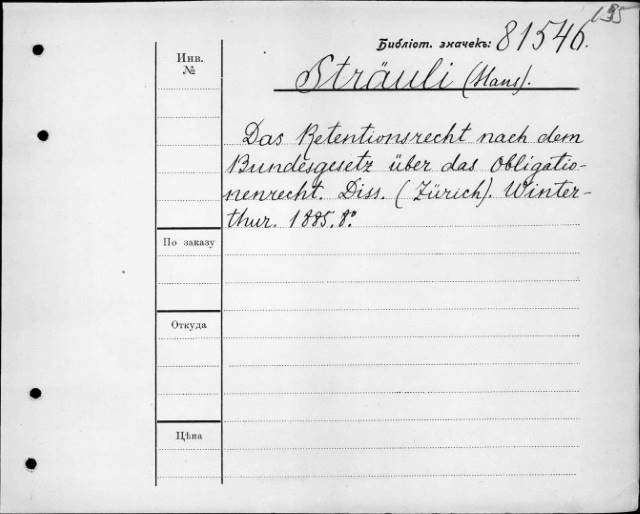 195
Библіот. значекъ: 81546.
Инв.
№
Sträuli (Hans).
Das Retentionsrecht nach dem
Bundesgesetz über das Obligatio-
nenrecht. Diss. (Zürich). Winter-
thur. 1885. 8°.
По заказу
Откуда
Цѣна